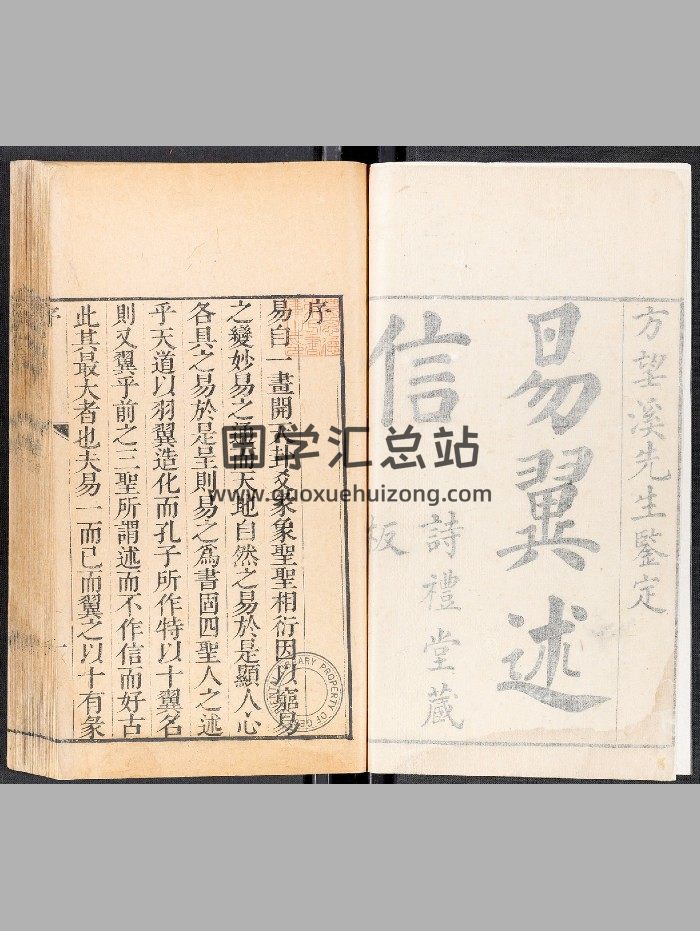 方望溪先生鑒定
易翼述
信
詩禮堂藏
板
序
易自一畫開天卦爻彖象聖聖相衍因以窮易
之變妙易之通而天地自然之易於是顯人心
各具之易於是呈則易之為書固四聖人之述
乎天道以羽翼造化而孔子所作特以十翼名
則又翼乎前之三聖所謂述而不作信而好古
此其最大者也夫易一而已而翼之以十有彖
序
一
国学汇总站
www.guoxuehuizong.com